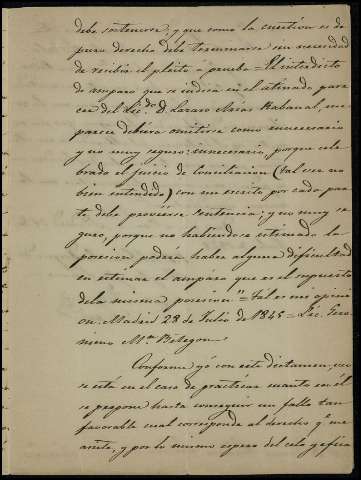 debe sentenciarse, y que como la cuestion es de
puro derecho debe terminarse sin necesidad
de recibir el pleito a prueba = El interdicto
de amparo que se indica en el atinado pare-
cer del Lic.do D. Lazaro Arias Rabanal, me
parece debiera omitirse como innecesario
y no muy seguro: innecesario, porque cele-
brado el juicio de conciliacion (tal vez no
bien entendido) con un escrito por cada par-
te, debe proveerse sentencia; y no muy se-
guro, porque no habiendose estimado la
posesion podria haber alguna dificultad
en estimar el amparo que es el supuesto
dela misma posesion" = Tal es mi opini-
on. Madrid 28 de Julio de 1845 = Lic. Gero-
nimo M.a Betegon
Conforme yó con este dictamen,
se está en el caso de practicar cuanto en él
se propone hasta conseguir un fallo tan
favorable cual corresponde al derecho q.e me
asiste, y por lo mismo espero del celo y efica